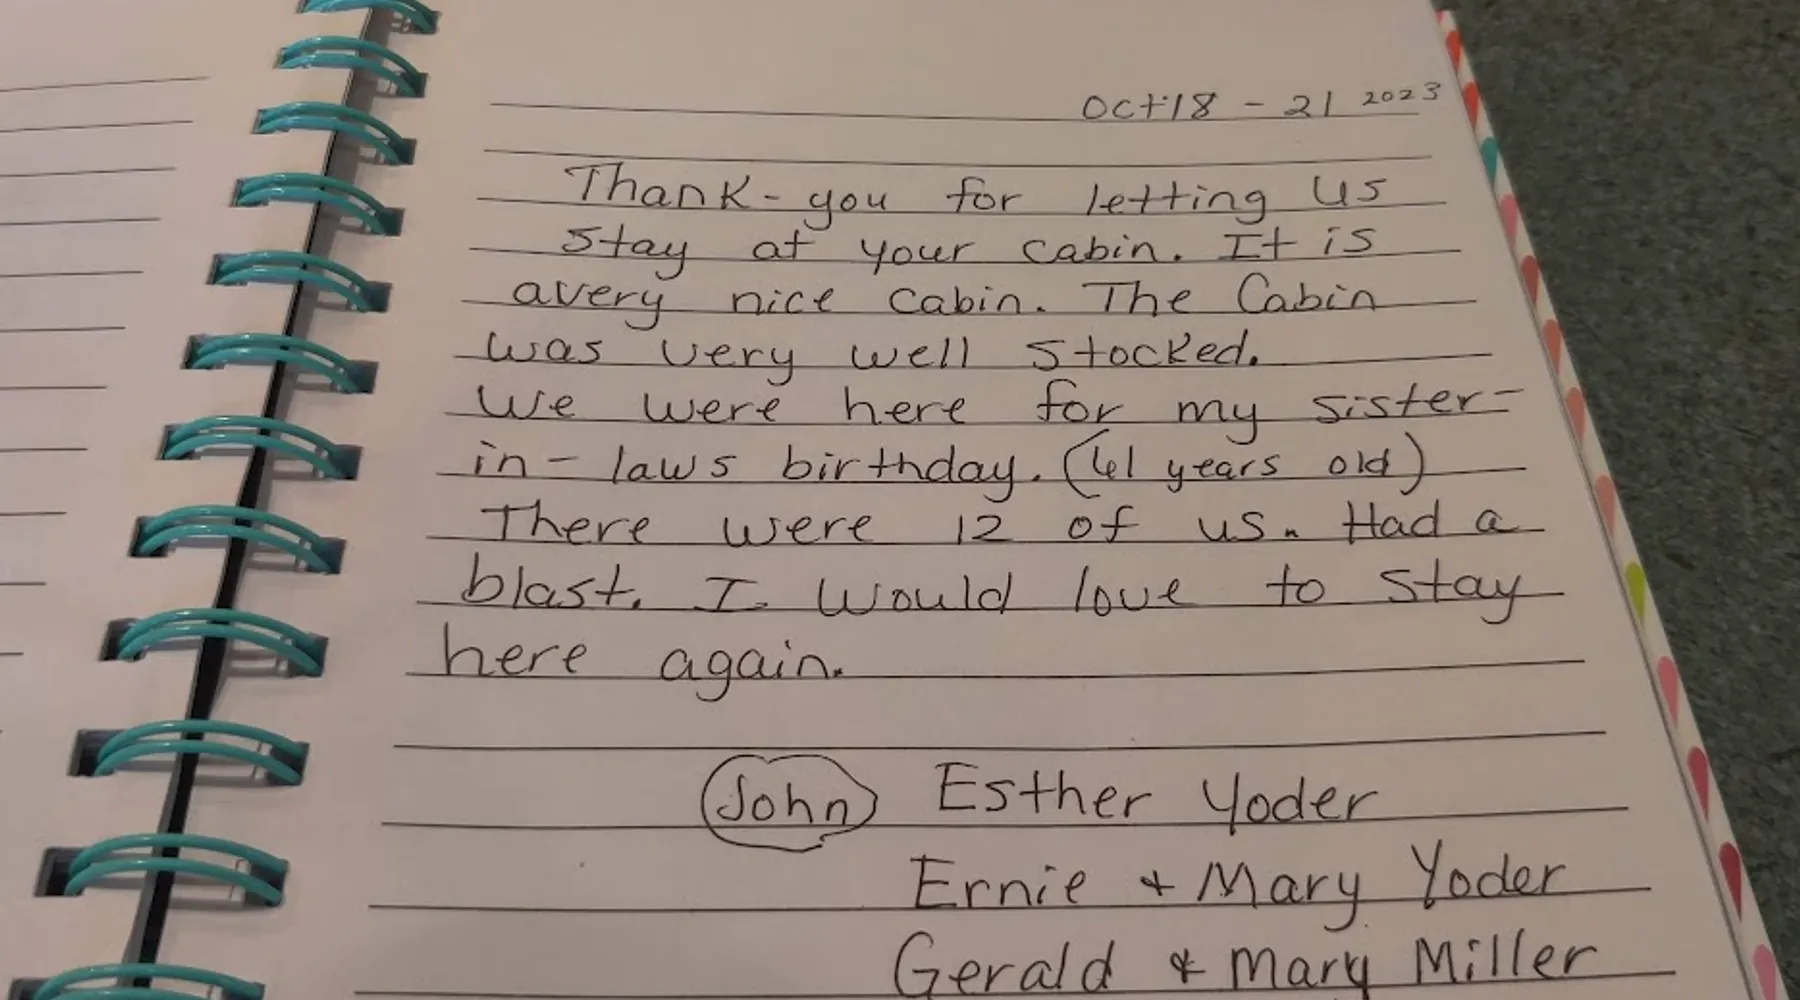 Oct 18 - 21 2023
Thank-you for letting us
stay at your cabin. It is
a very nice cabin. The Cabin
was very well stocked.
We were here for my sister-
in-laws birthday. (61 years old)
There were 12 of us. Had a
blast. I would love to stay
here again.
John Esther Yoder
Ernie & Mary Yoder
Gerald & Mary Miller